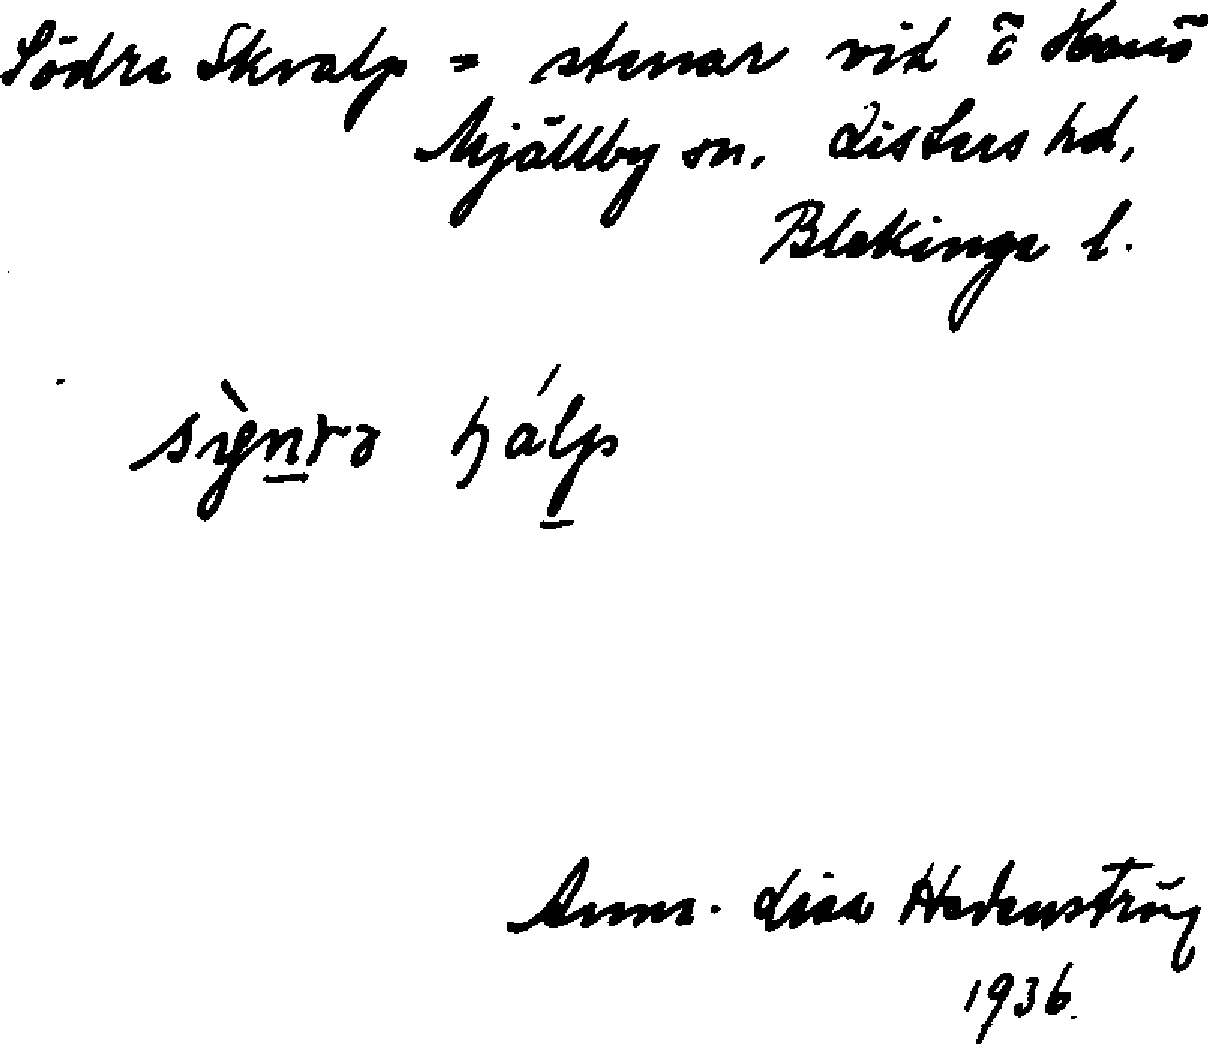 Södra Skvalp = stenar vid ö Hanö
Mjällby sn. Listers hd,
Blekinge l.
Anna-Lisa Hedenström
1936.